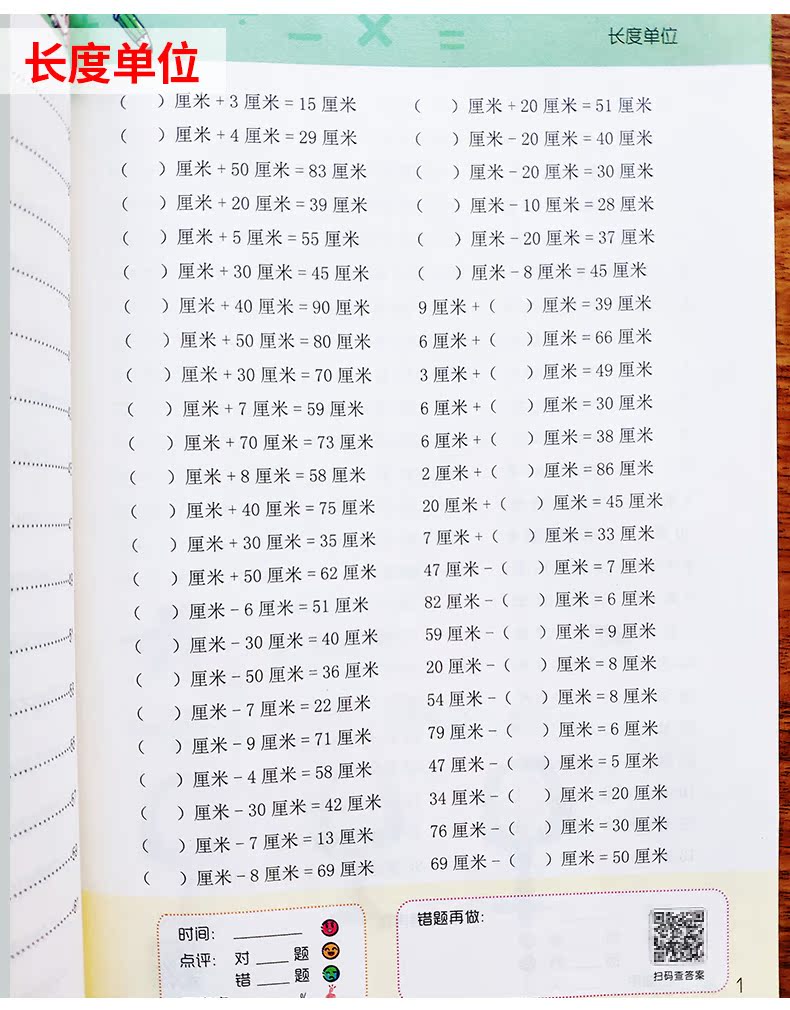 长度单位
长度单位
(  )厘米+3厘米=15厘米
(  )厘米+4厘米=29厘米
(  )厘米+50厘米=83厘米
(  )厘米+20厘米=39厘米
(  )厘米+5厘米=55厘米
(  )厘米+30厘米=45厘米
(  )厘米+40厘米=90厘米
(  )厘米+50厘米=80厘米
(  )厘米+30厘米=70厘米
(  )厘米+7厘米=59厘米
(  )厘米+70厘米=73厘米
(  )厘米+8厘米=58厘米
(  )厘米+40厘米=75厘米
(  )厘米+30厘米=35厘米
(  )厘米+50厘米=62厘米
(  )厘米-6厘米=51厘米
(  )厘米-30厘米=40厘米
(  )厘米-50厘米=36厘米
(  )厘米-7厘米=22厘米
(  )厘米-9厘米=71厘米
(  )厘米-4厘米=58厘米
(  )厘米-30厘米=42厘米
(  )厘米-7厘米=13厘米
(  )厘米-8厘米=69厘米
(  )厘米+20厘米=51厘米
(  )厘米-20厘米=40厘米
(  )厘米-20厘米=30厘米
(  )厘米-10厘米=28厘米
(  )厘米-20厘米=37厘米
(  )厘米-8厘米=45厘米
9厘米+(  )厘米=39厘米
6厘米+(  )厘米=66厘米
3厘米+(  )厘米=49厘米
6厘米+(  )厘米=30厘米
6厘米+(  )厘米=38厘米
2厘米+(  )厘米=86厘米
20厘米+(  )厘米=45厘米
7厘米+(  )厘米=33厘米
47厘米-(  )厘米=7厘米
82厘米-(  )厘米=6厘米
59厘米-(  )厘米=9厘米
20厘米-(  )厘米=8厘米
54厘米-(  )厘米=8厘米
79厘米-(  )厘米=6厘米
47厘米-(  )厘米=5厘米
34厘米-(  )厘米=20厘米
76厘米-(  )厘米=30厘米
69厘米-(  )厘米=50厘米
时间: ______
点评: 对___题
错___题
错题再做:
扫码查答案
1